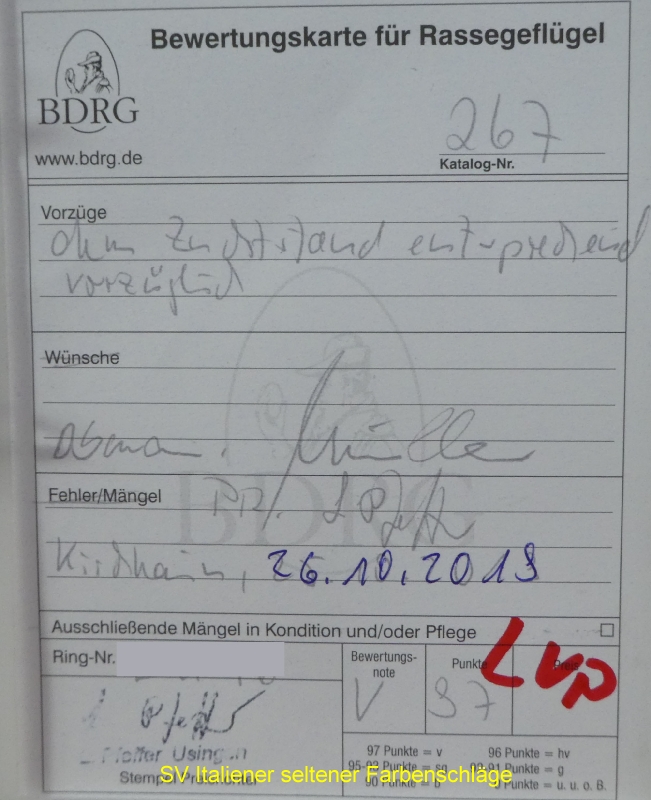 Bewertungskarte für Rassegeflügel
BDRG
www.bdrg.de
267
Katalog-Nr.
Vorzüge
dem Zuchtstand entsprechend
vorzüglich
Wünsche
Obmann
Müller
Fehler/Mängel
PR. L Pfeffer
Kirchhain, 26.10.2019
Ausschließende Mängel in Kondition und/oder Pflege
LVP
Ring-Nr.
Bewertungs-
note
Punkte
Preis
V
97
Pfeffer
L. Pfeffer Usingen
Stempel Preisrichter
97 Punkte = v
96 Punkte = hv
95-93 Punkte = sg
92-91 Punkte = g
90 Punkte = b
0 Punkte = u. u. o. B.
SV Italiener seltener Farbenschläge
BDRG